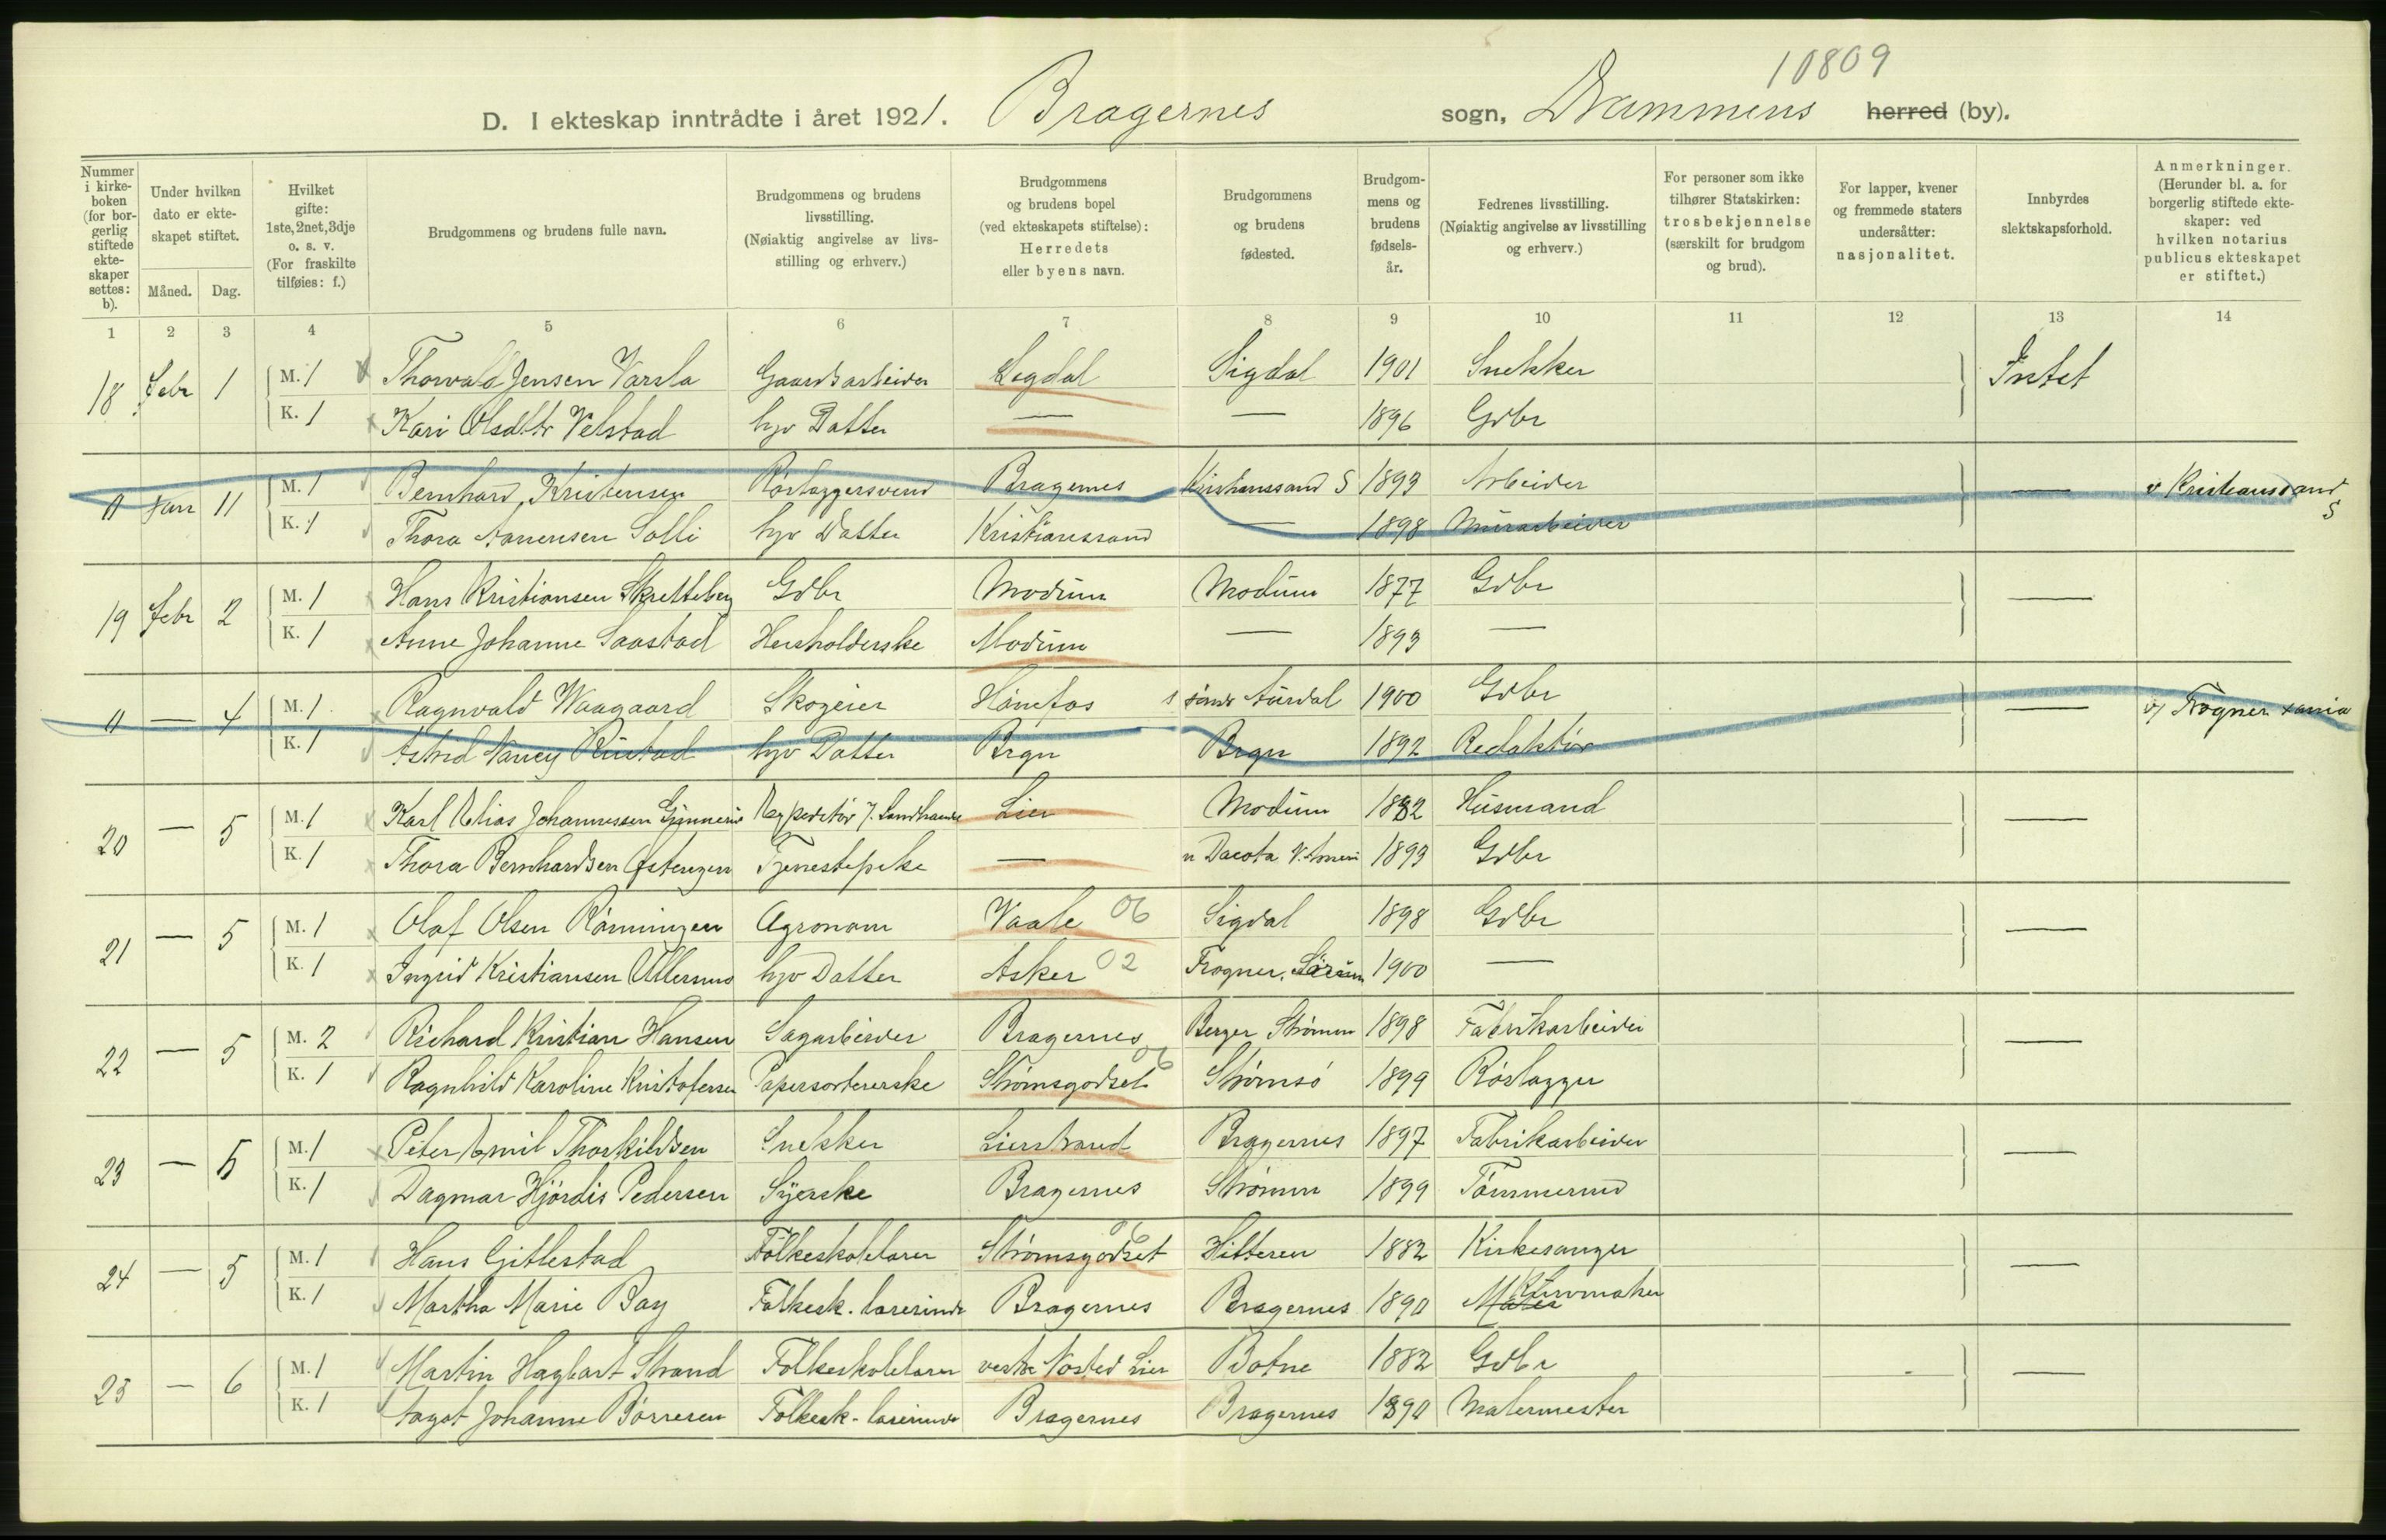 10809
D. I ekteskap inntrådte i året 1921. Bragernes sogn, Drammens herred (by).
Nummer i kirke-boken (for bor-gerlig stiftede ekte-skaper settes: b).
Under hvilken dato er ekte-skapet stiftet.
Måned. Dag.
Hvilket gifte: 1ste, 2net, 3dje o. s. v. (For fraskilte tilføies: f.)
Brudgommens og brudens fulle navn.
Brudgommens og brudens livsstilling. (Nøiaktig angivelse av livs-stilling og erhverv.)
Brudgommens og brudens bopel (ved ekteskapets stiftelse): Herredets eller byens navn.
Brudgommens og brudens fødested.
Brudgom-mens og brudens fødsels-år.
Fedrenes livsstilling. (Nøiaktig angivelse av livsstilling og erhverv.)
For personer som ikke tilhører Statskirken: trosbekjennelse (særskilt for brudgom og brud).
For lapper, kvener og fremmede staters undersåtter: nasjonalitet.
Innbyrdes slektskapsforhold.
Anmerkninger. (Herunder bl. a. for borgerlig stiftede ekte-skaper: ved hvilken notarius publicus ekteskapet er stiftet.)
1 2 3 4 5 6 7 8 9 10 11 12 13 14
18 Febr 1 M. 1 Thorvald Jensen Varsla Gaardsarbeider Sigdal 1901 Snekker Intet
K. 1 Kari Olsdttr Velstad hjv Datter — — 1896 Gdbr
0 Jan 11 M. 1 Bernhard Kristensen Rørlæggersvend Bragernes Kristianssand S 1893 Arbeider — v Kristianssand S
K. 1 Thora Aanensen Solli hjv Datter Kristianssand — 1898 Murarbeider
19 Febr 2 M. 1 Hans Kristiansen Skretteberg Gdbr Modum Modum 1877 Gdbr —
K. 1 Anne Johanne Saastad Husholderske Modum — 1893 —
0 — 4 M. 1 Ragnvald Waagaard Skogeier Hønefos søndr Aurdal 1900 Gdbr — v/ Frogner xania
K. 1 Astrid Nancy Rustad hjv Datter Brgn Brgn 1892 Redaktør
20 — 5 M. 1 Karl Elias Johannessen Lier Modum 1882 Husmand —
K. 1 Thora Bernhardsen Tjenestepike — n Dacota N. Ameri 1893 Gdbr
21 — 5 M. 1 Olaf Olsen Rønningen Agronom Vaale 06 Sigdal 1898 Gdbr —
K. 1 Ingrid Kristiansen Ullernes hjv Datter Asker 02 Frogner, Sørum 1900 —
22 — 5 M. 2 Richard Kristian Hansen Sagarbeider Bragernes Berger Strømm 1898 Fabrikarbeider —
K. 1 Ragnhild Karoline Kristofersen Papirsortererske Strømsgodset 06 Strømsø 1899 Rørlægger
23 — 5 M. 1 Peter Emil Thorkildsen Snekker Lierstrand Bragernes 1897 Fabrikarbeider —
K. 1 Dagmar Hjördis Pedersen Syerske Bragernes Strømm 1899 Tømmermd
24 — 5 M. 1 Hans Gitlestad Folkeskolelærer Strømsgodset 06 Hitteren 1882 Kirkesanger —
K. 1 Martha Marie Bay Folkesk. lærerinde Bragernes Bragernes 1890
25 — 6 M. 1 Martin Hagbart Strand Folkeskolelærer vestre Nøsted Lier Botne 1882 Gdbr —
K. 1 Aagot Johanne Børresen Folkesk. lærerinde Bragernes Bragernes 1890 Malermester